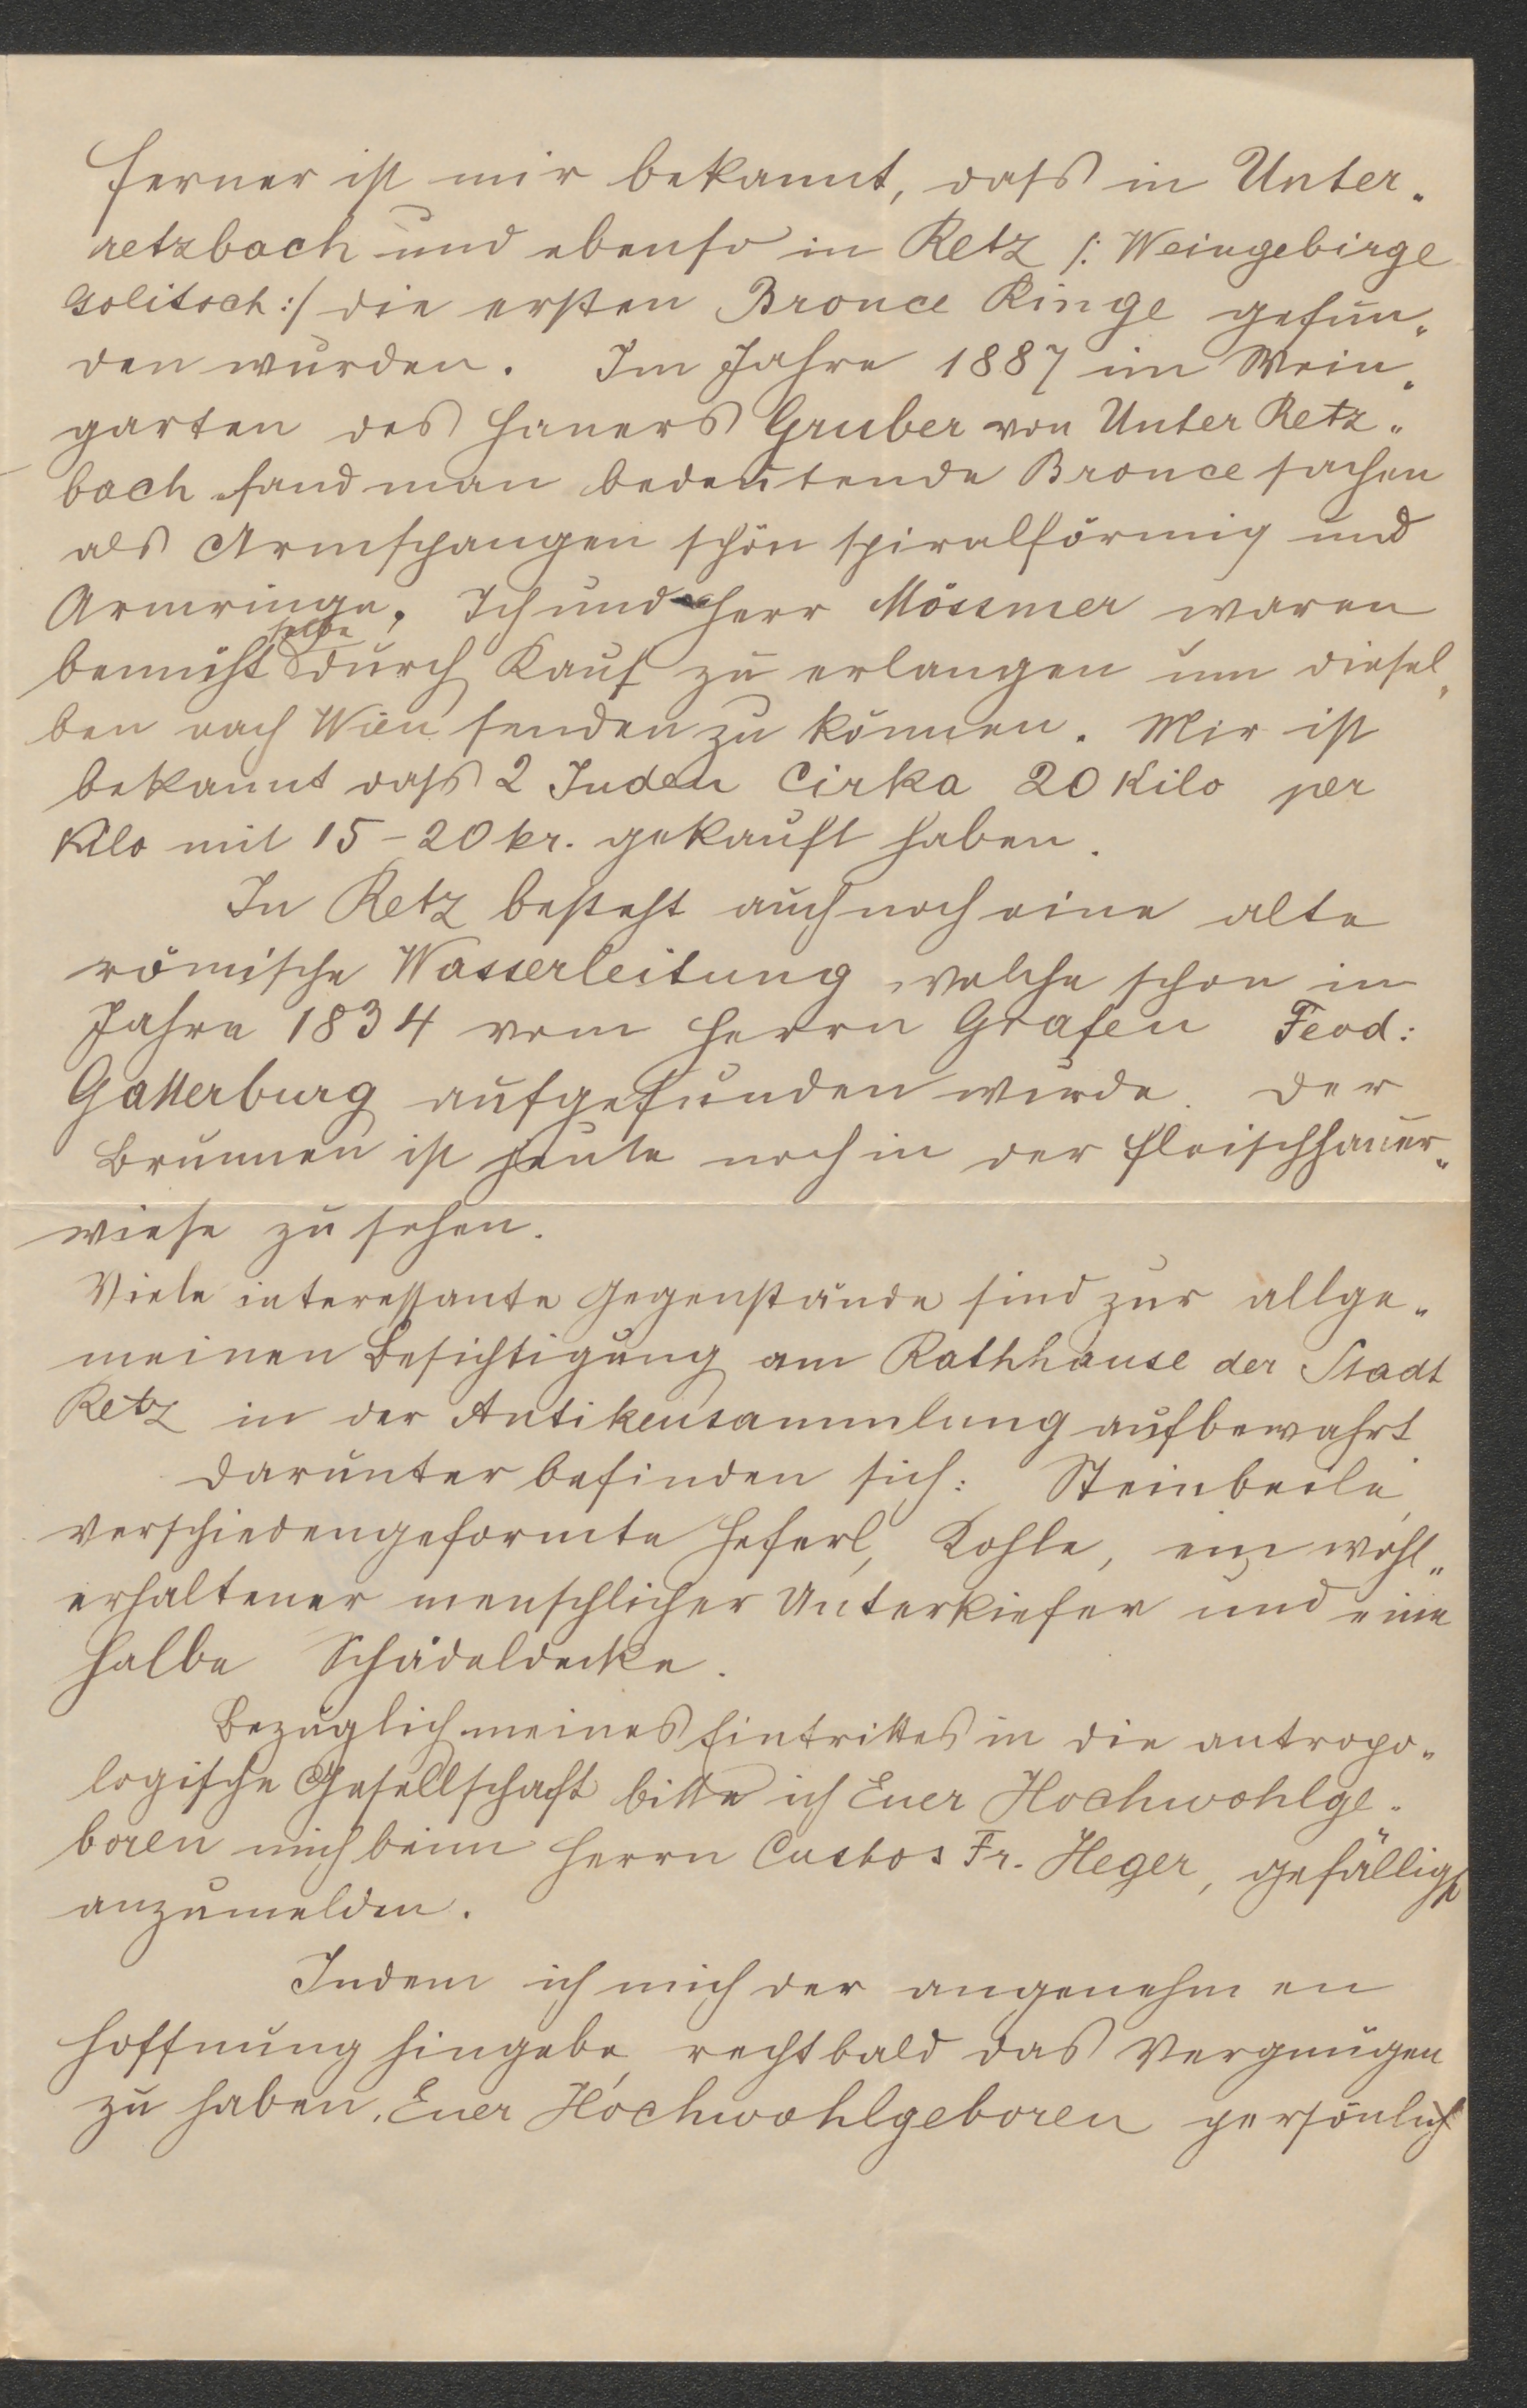 Ferner ist mir bekannt, daß in Unter„
retzbach und ebenso in Retz /: Weingebirge
Golitsch :/ die ersten Bronce Ringe gefun„
den wurden. Im Jahre 1887 im Wein„
garten des Hauers Gruber von Unter Retz„
bach fand man bedeutende Bronce sachen
als Armschangen schön spiralförmig und
Armringe. Ich und Herr Mössmer waren
bemüht selbe durch Kauf zu erlangen um diesel„
ben nach Wien senden zu können. Mir ist
bekannt daß 2 Juden Cirka 20 Kilo per
Kilo mit 15-20 kr. gekauft haben.
In Retz besteht auch noch eine alte
römische Wasserleitung, welche schon im
Jahre 1834 vom Herrn Grafen Feod:
Gatterburg aufgefunden wurde. Der
Brunnen ist heute noch in der Fleischhauer„
wiese zu sehen.
Viele interessante Gegenstände sind zur allge„
meinen Besichtigung am Rathhause der Stadt
Retz in der Antikensammlung aufbewahrt
darunter befinden sich: Steinbeile,
verschiedengeformte Heferl, Kohle, ein wohl„
erhaltener menschlicher Unterkiefer und eine
halbe Schädeldecke.
Bezüglich meines Eintrittes in die antropo„
logische Gesellschaft bitte ich Euer Hochwohlge„
boren mich beim Herrn Custos Fr. Heger, gefälligst
anzumelden.
Indem ich mich der angenehmen
Hoffnung hingebe, recht bald das Vergnügen
zu haben, Euer Hochwohlgeboren persönlich